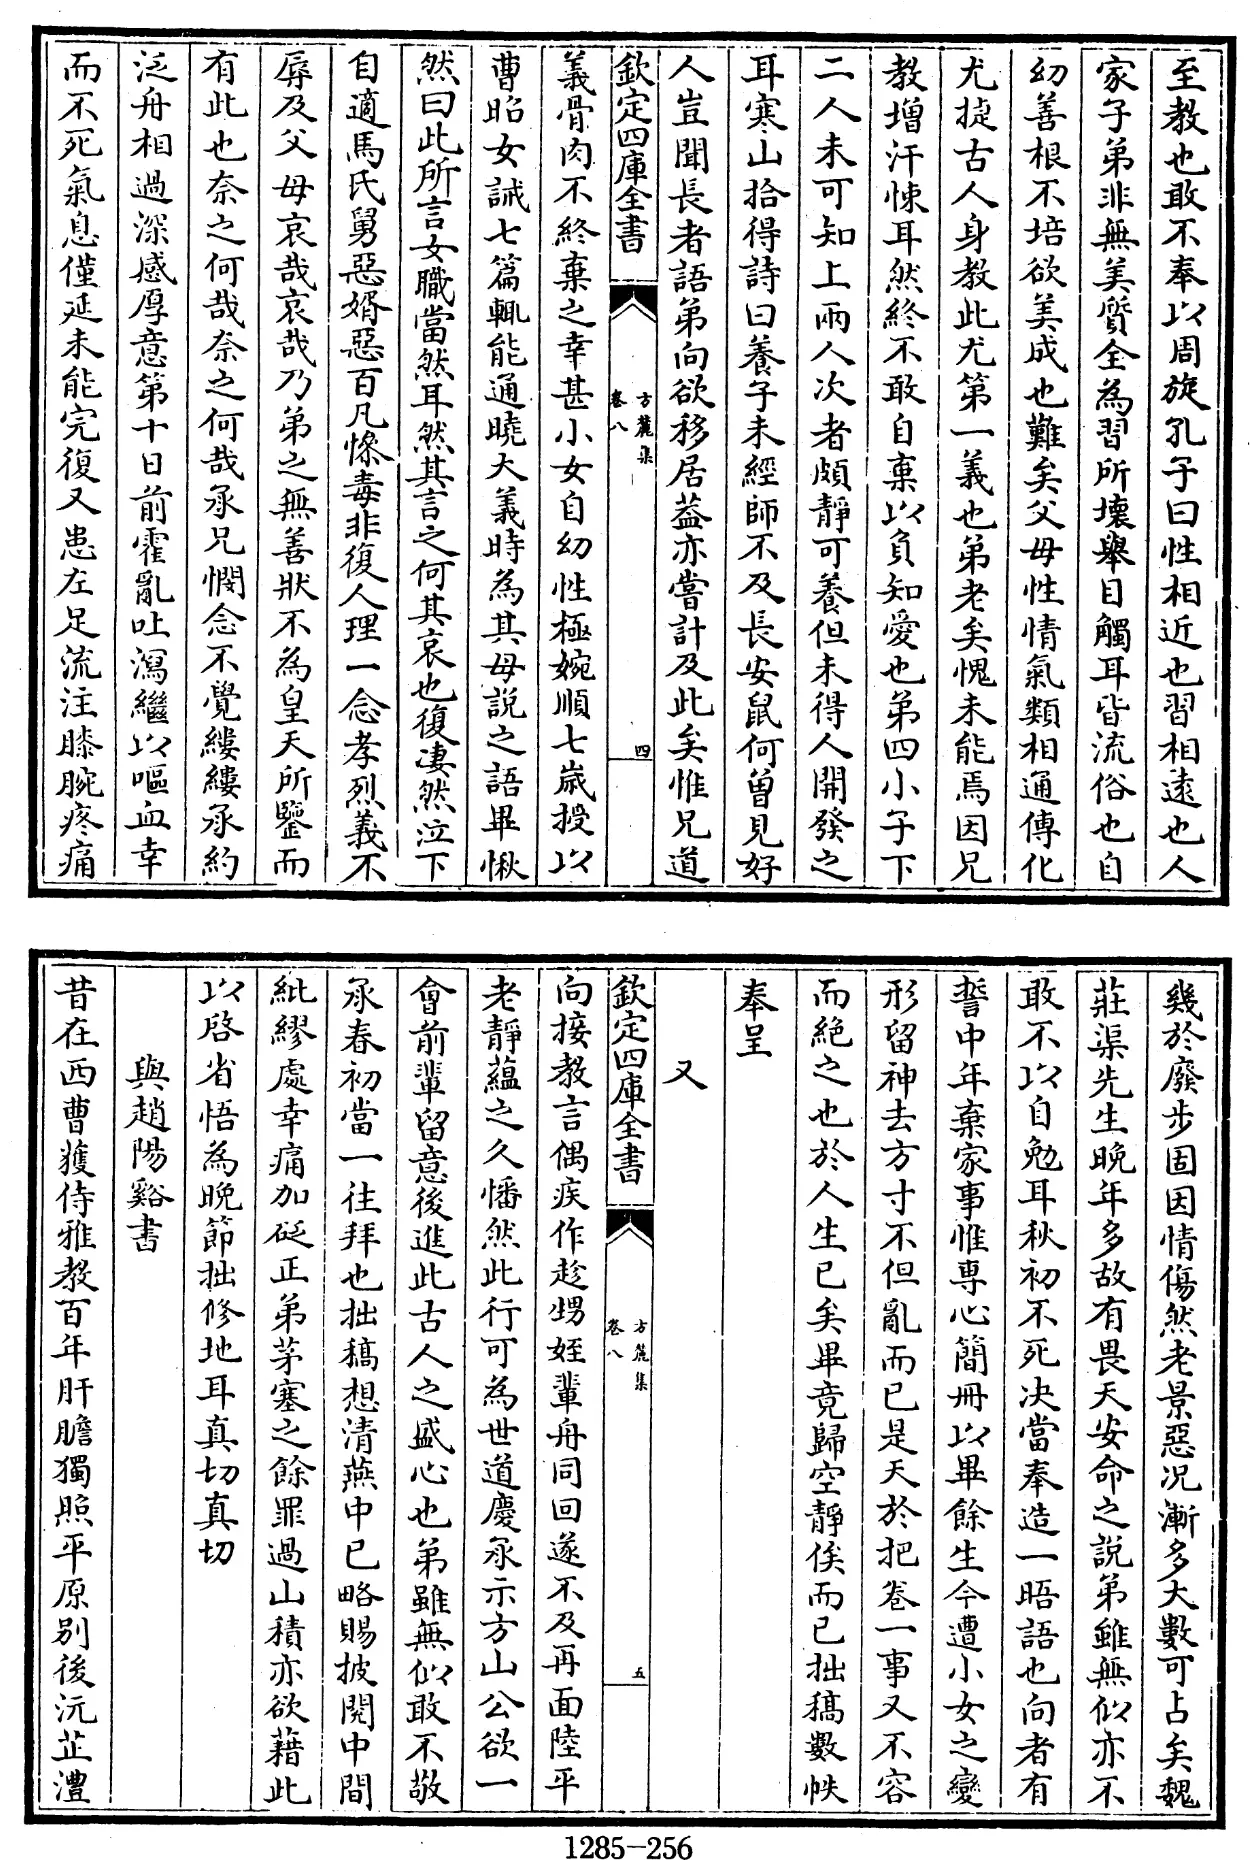 至教也敢不奉以周旋孔子曰性相近也習相遠也人
家子弟非無美質全為習所壞舉目觸耳皆流俗也自
幼善根不培欲美成也難矣父母性情氣類相通傳化
尤捷古人身教此尤第一義也弟老矣愧未能焉因兄
教增汗悚耳然終不敢自棄以負知愛也弟四小子下
二人未可知上兩人次者頗靜可養但未得人開發之
耳寒山拾得詩曰養子未經師不及長安鼠何曾見好
人豈聞長者語弟向欲移居葢亦嘗計及此矣惟兄道
欽定四庫全書
方麓集
卷八
四
義骨肉不終棄之幸甚小女自幼性極婉順七歲授以
曹昭女誡七篇輒能通曉大義時為其母說之語畢愀
然曰此所言女職當然耳然其言之何其哀也復淒然泣下
自適馬氏舅惡婿惡百凡慘毒非復人理一念孝烈義不
辱及父母哀哉哀哉乃弟之無善狀不為皇天所鑒而
有此也奈之何哉奈之何哉承兄憫念不覺縷縷承約
泛舟相過深感厚意第十日前霍亂吐瀉繼以嘔血幸
而不死氣息僅延未能完復又患左足流注膝腕疼痛
幾於廢步固因情傷然老景惡况漸多大數可占矣魏
莊渠先生晚年多故有畏天安命之說弟雖無似亦不
敢不以自勉耳秋初不死决當奉造一晤語也向者有
誓中年棄家事惟專心簡冊以畢餘生今遭小女之變
形留神去方寸不但亂而已是天於把卷一事又不容
而絕之也於人生已矣畢竟歸空靜俟而已拙稿數帙
奉呈
又
欽定四庫全書
方麓集
卷八
五
向接教言偶疾作趁甥姪輩舟同回遂不及再面陸平
老靜蘊之久幡然此行可為世道慶承示方山公欲一
會前輩留意後進此古人之盛心也弟雖無似敢不敬
承春初當一往拜也拙稿想清燕中已略賜披閱中間
紕繆處幸痛加砭正弟茅塞之餘罪過山積亦欲藉此
以啓省悟為晚節拙修地耳真切真切
與趙陽谿書
昔在西曹獲侍雅教百年肝膽獨照平原别後沅芷澧
1285-256